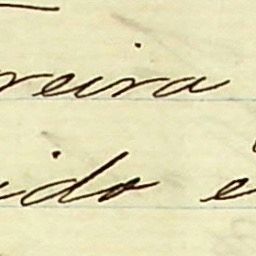 reira
ido é